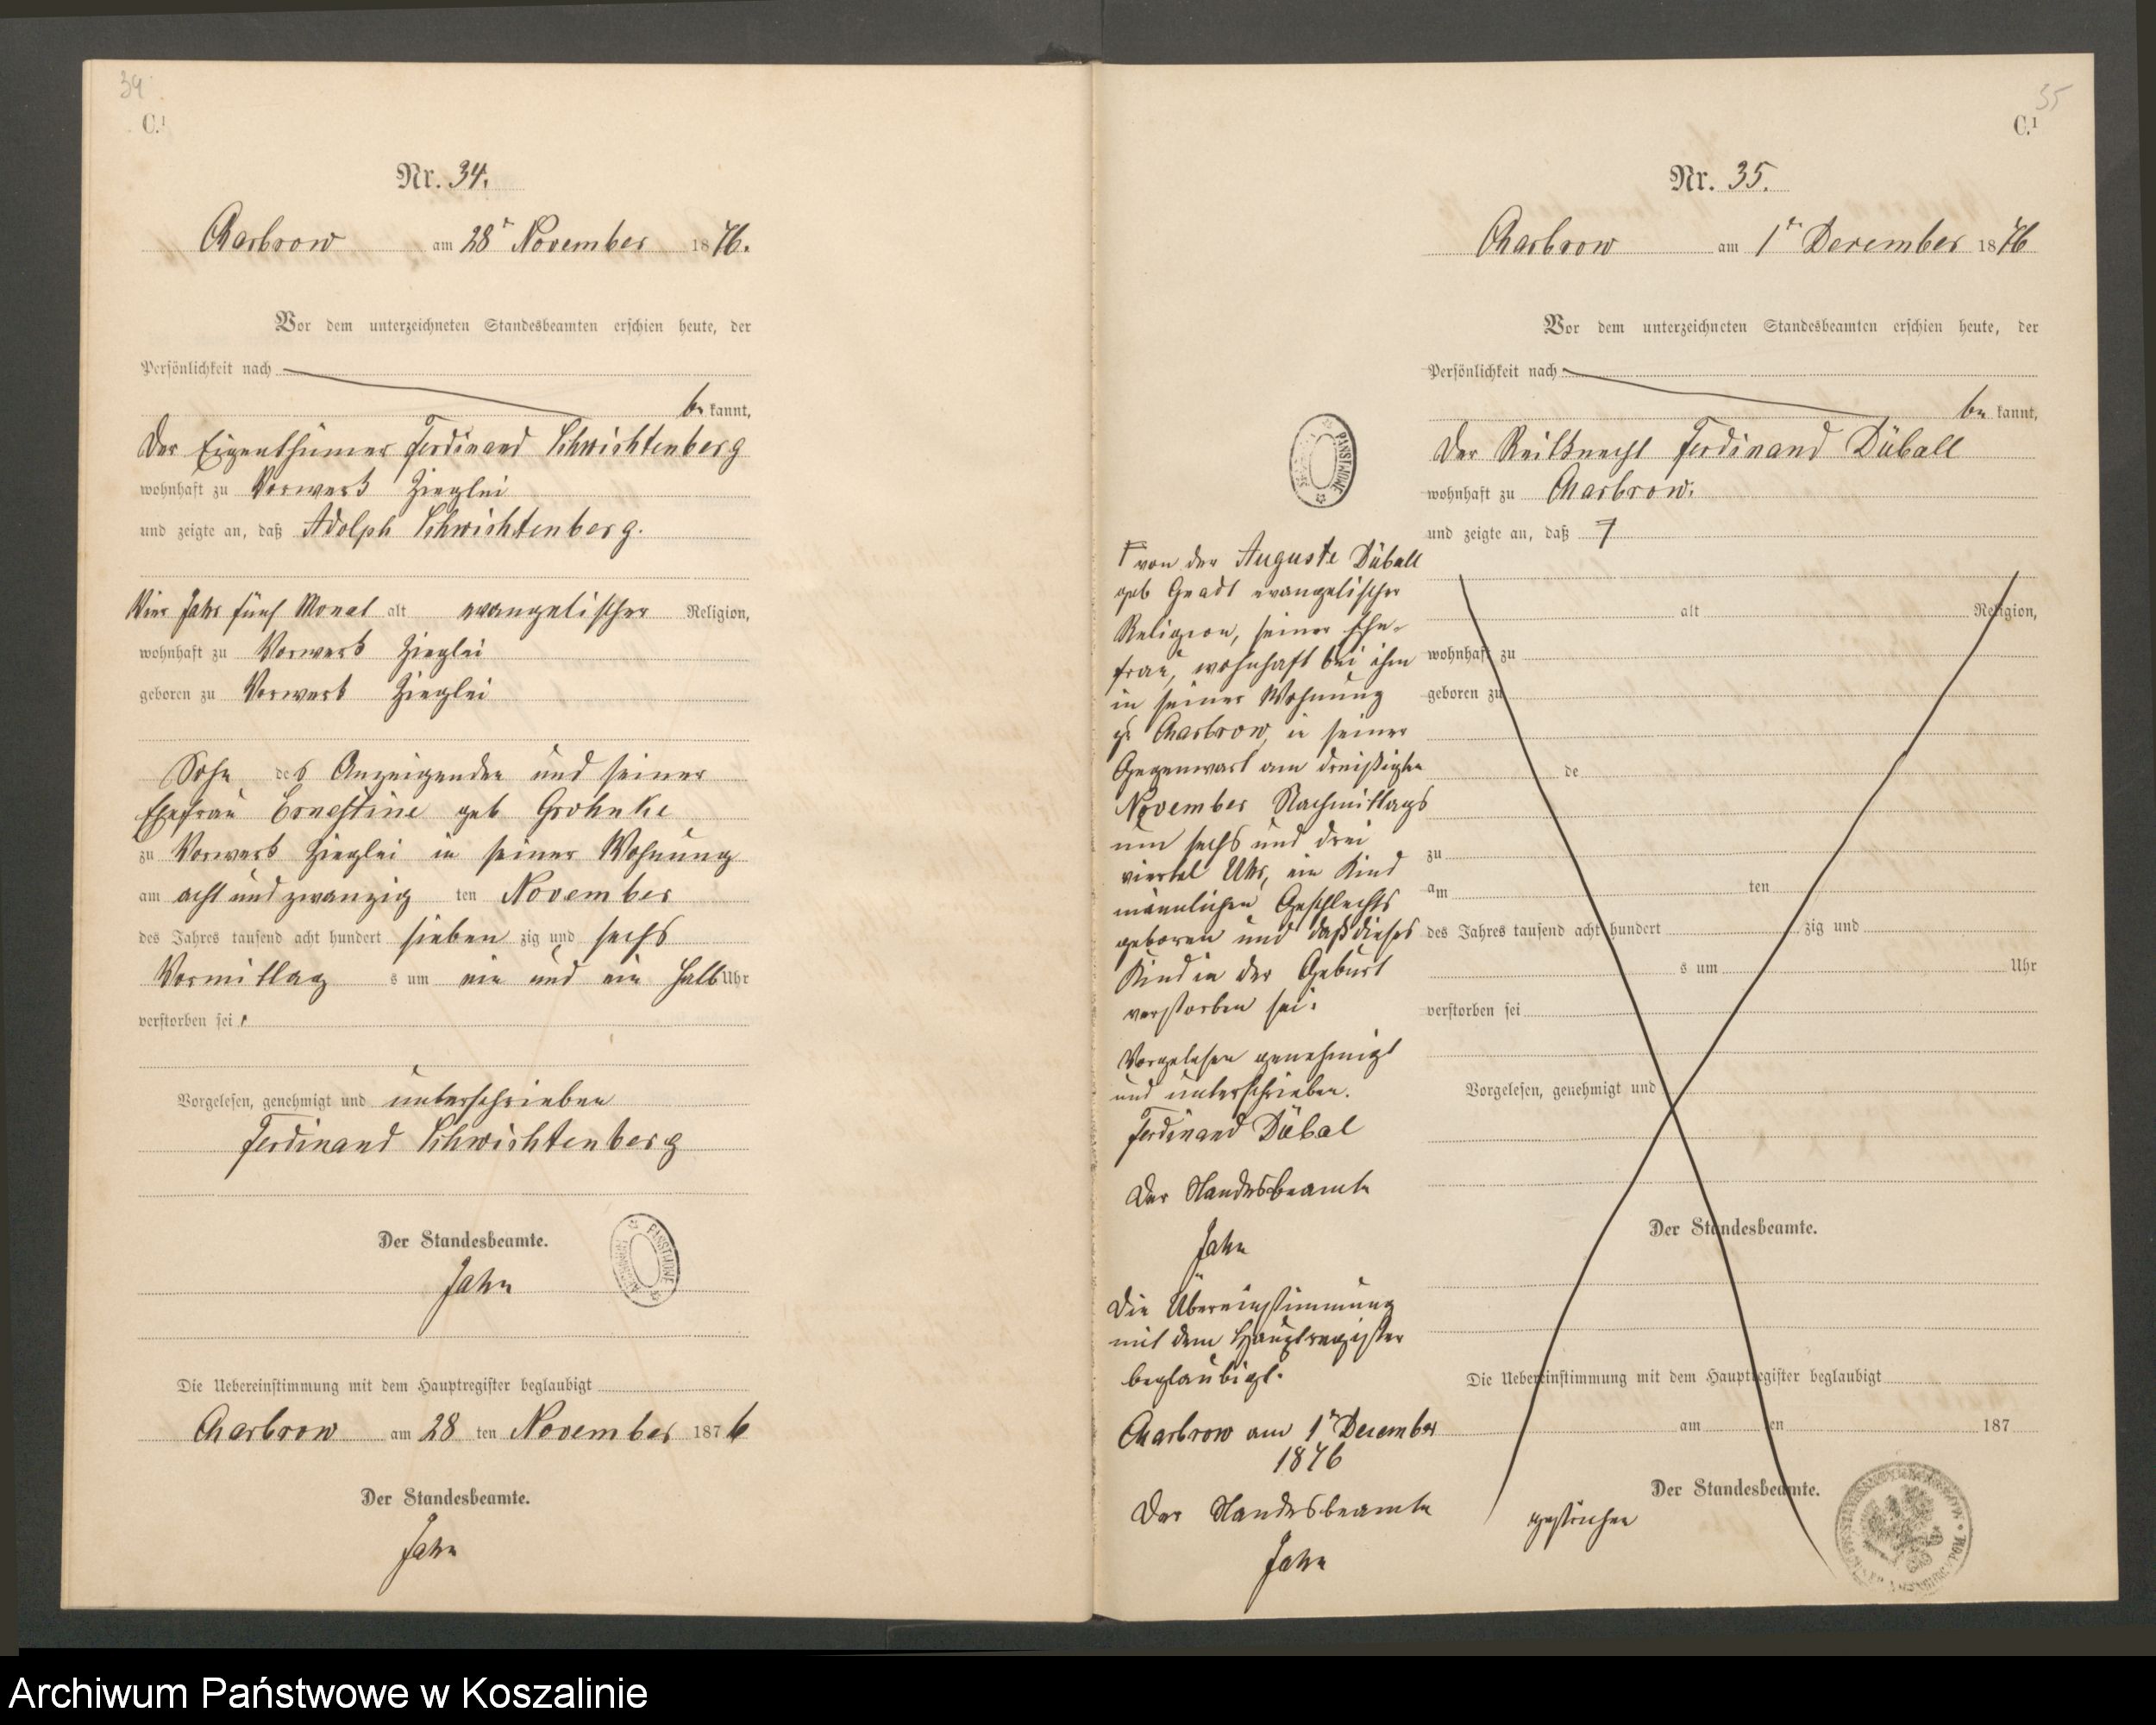 34
C.1
Nr. 34.
Charbrow am 28t November 1876.
Vor dem unterzeichneten Standesbeamten erschien heute, der
Persönlichkeit nach
be kannt,
Der Eigenthümer Ferdinand Schwichtenberg
wohnhaft zu Vorwerk Zieglei
und zeigte an, daß Adolph Schwichtenberg.
Vier Jahr fünf Monat alt evangelischer Religion,
wohnhaft zu Vorwerk Zieglei
geboren zu Vorwerk Zieglei
Sohn des Anzeigenden und seiner
Ehefrau Ernestine geb Grohnke
zu Vorwerk Zieglei in seiner Wohnung
am acht und zwanzig ten November
des Jahres tausend acht hundert sieben zig und sechs
Vormittag s um ein und ein halb Uhr
verstorben sei.
Vorgelesen, genehmigt und unterschrieben
Ferdinand Schwichtenberg
Der Standesbeamte.
Jahn
Die Uebereinstimmung mit dem Hauptregister beglaubigt
Charbrow am 28 ten November 1876
Der Standesbeamte.
Jahn
35
C.1
Nr. 35.
Charbrow am 1t December 1876
Vor dem unterzeichneten Standesbeamten erschien heute, der
Persönlichkeit nach
be kannt,
Der Reitknecht Ferdinand Düball
wohnhaft zu Charbrow.
und zeigte an, daß
von der Auguste Düball
geb evangelischer
Religion, seiner Ehe-
frau, wohnhaft bei ihm
in seiner Wohnung
zu Charbrow, in seiner
Gegenwart am dreißigten
November Nachmittags
um sechs und drei
viertel Uhr, ein Kind
männlichen Geschlechts
geboren und daß dieses
Kind in der Geburt
verstorben sei.
Vorgelesen genehmigt
und unterschrieben.
Ferdinand Dübal
Der Standesbeamte
Jahn
Die Übereinstimmung
mit dem Hauptregister
beglaubigt.
Charbrow am 1t December
1876
Der Standesbeamte
Jahn
alt Religion,
wohnhaft zu
geboren zu
de
zu
am ten
des Jahres tausend acht hundert zig und
s um Uhr
verstorben sei
Vorgelesen, genehmigt und
Der Standesbeamte.
Die Uebereinstimmung mit dem Hauptregister beglaubigt
am ten 187
Der Standesbeamte.
gestrichen
Archiwum Państwowe w Koszalinie